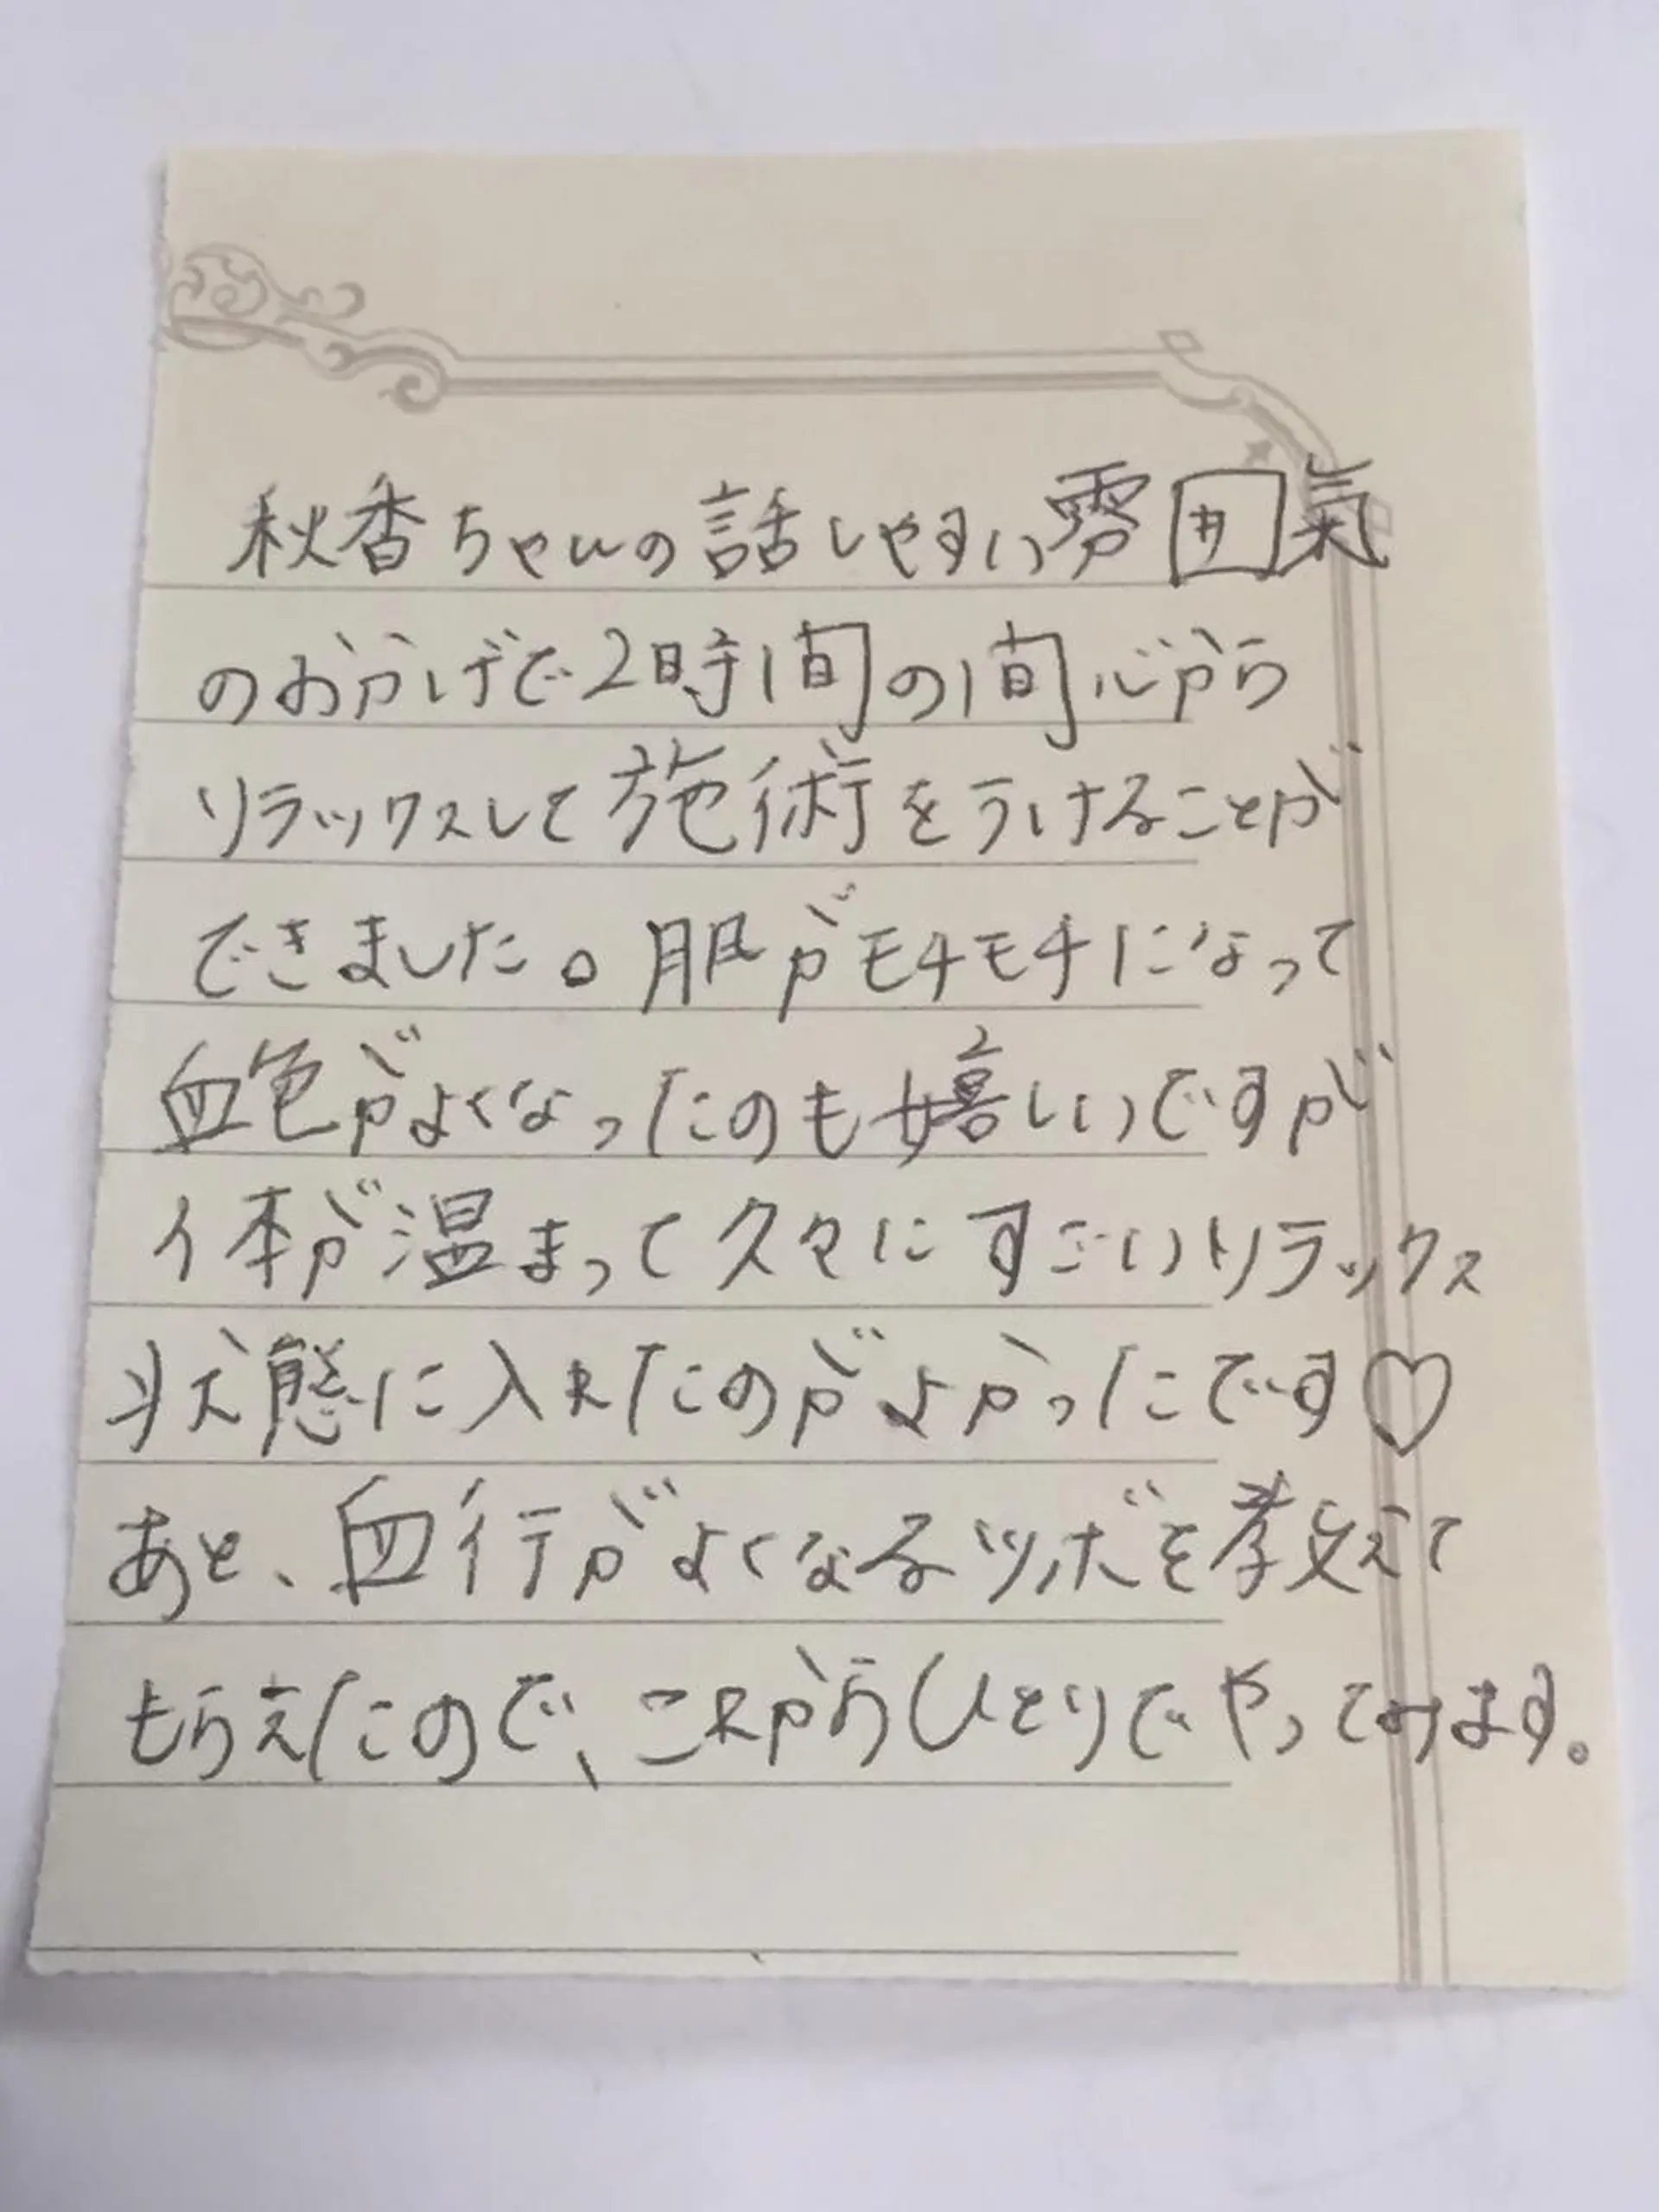 秋香ちゃんの話しやすい雰囲気
のおかげで2時間の間心から
リラックスして施術をうけることが
できました。肌がモチモチになって
血色がよくなったのも嬉しいですが
体が温まって久々にすごいリラックス
状態に入れたのがよかったです♡
あと、血行がよくなるツボを教えて
もらえたので、これからひとりでやってみます。